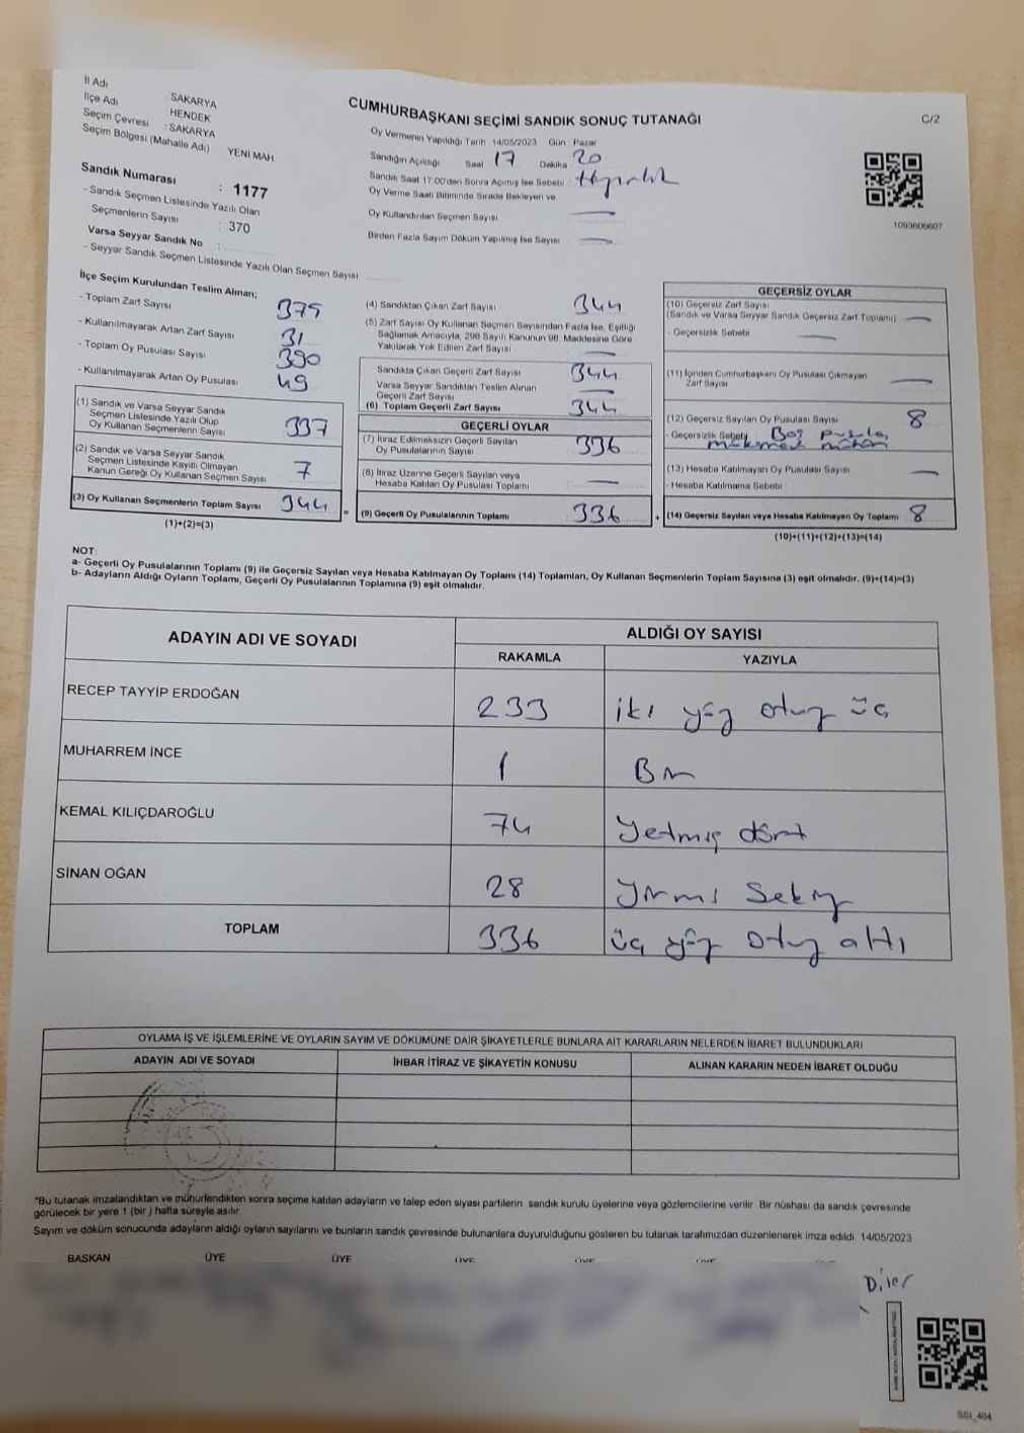 İl Adı SAKARYA
İlçe Adı HENDEK
Seçim Çevresi : SAKARYA
Seçim Bölgesi (Mahalle Adı) YENİ MAH.
Sandık Numarası : 1177
- Sandık Seçmen Listesinde Yazılı Olan
Seçmenlerin Sayısı : 370
Varsa Seyyar Sandık No :
- Seyyar Sandık Seçmen Listesinde Yazılı Olan Seçmen Sayısı
CUMHURBAŞKANI SEÇİMİ SANDIK SONUÇ TUTANAĞI
C/2
Oy Vermenin Yapıldığı Tarih 14/05/2023 Gün : Pazar
Sandığın Açıldığı Saat 17 Dakika 20
Sandık Saat 17:00'den Sonra Açılmış İse Sebebi :
Oy Verme Saati Bitiminde Sırada Bekleyen ve
Oy Kullandırılan Seçmen Sayısı —
Birden Fazla Sayım Döküm Yapılmış İse Sayısı —
1093606607
İlçe Seçim Kurulundan Teslim Alınan;
- Toplam Zarf Sayısı 375
- Kullanılmayarak Artan Zarf Sayısı 31
- Toplam Oy Pusulası Sayısı 390
- Kullanılmayarak Artan Oy Pusulası 49
(1) Sandık ve Varsa Seyyar Sandık
Seçmen Listesinde Yazılı Olup
Oy Kullanan Seçmenlerin Sayısı 337
(2) Sandık ve Varsa Seyyar Sandık
Seçmen Listesinde Kayıtlı Olmayan
Kanun Gereği Oy Kullanan Seçmen Sayısı 7
(3) Oy Kullanan Seçmenlerin Toplam Sayısı 344
(1)+(2)=(3)
(4) Sandıktan Çıkan Zarf Sayısı 344
(5) Zarf Sayısı Oy Kullanan Seçmen Sayısından Fazla İse, Eşitliği
Sağlamak Amacıyla, 298 Sayılı Kanunun 98. Maddesine Göre
Yakılarak Yok Edilen Zarf Sayısı —
Sandıkta Çıkan Geçerli Zarf Sayısı 344
Varsa Seyyar Sandıktan Teslim Alınan
Geçerli Zarf Sayısı —
(6) Toplam Geçerli Zarf Sayısı 344
GEÇERLİ OYLAR
(7) İtiraz Edilmeksizin Geçerli Sayılan
Oy Pusulalarının Sayısı 336
(8) İtiraz Üzerine Geçerli Sayılan veya
Hesaba Katılan Oy Pusulası Toplamı —
(9) Geçerli Oy Pusulalarının Toplamı 336
GEÇERSİZ OYLAR
(10) Geçersiz Zarf Sayısı
(Sandık ve Varsa Seyyar Sandık Geçersiz Zarf Toplamı) —
- Geçersizlik Sebebi —
(11) İçinden Cumhurbaşkanı Oy Pusulası Çıkmayan
Zarf Sayısı —
(12) Geçersiz Sayılan Oy Pusulası Sayısı 8
- Geçersizlik Sebebi Boş pusula,
(13) Hesaba Katılmayan Oy Pusulası Sayısı —
- Hesaba Katılmama Sebebi
(14) Geçersiz Sayılan veya Hesaba Katılmayan Oy Toplamı 8
(10)+(11)+(12)+(13)=(14)
NOT:
a- Geçerli Oy Pusulalarının Toplamı (9) ile Geçersiz Sayılan veya Hesaba Katılmayan Oy Toplamı (14) Toplamları, Oy Kullanan Seçmenlerin Toplam Sayısına (3) eşit olmalıdır. (9)+(14)=(3)
b- Adayların Aldığı Oyların Toplamı, Geçerli Oy Pusulalarının Toplamına (9) eşit olmalıdır.
ADAYIN ADI VE SOYADI
ALDIĞI OY SAYISI
RAKAMLA YAZIYLA
RECEP TAYYİP ERDOĞAN 233 iki yüz otuz üç
MUHARREM İNCE 1 Bir
KEMAL KILIÇDAROĞLU 74 Yetmiş dört
SİNAN OĞAN 28 Yirmi Sekiz
TOPLAM 336 üç yüz otuz altı
OYLAMA İŞ VE İŞLEMLERİNE VE OYLARIN SAYIM VE DÖKÜMÜNE DAİR ŞİKAYETLERLE BUNLARA AİT KARARLARIN NELERDEN İBARET BULUNDUKLARI
ADAYIN ADI VE SOYADI İHBAR İTİRAZ VE ŞİKAYETİN KONUSU ALINAN KARARIN NEDEN İBARET OLDUĞU
*Bu tutanak imzalandıktan ve mühürlendikten sonra seçime katılan adayların ve talep eden siyasi partilerin sandık kurulu üyelerine veya gözlemcilerine verilir. Bir nüshası da sandık çevresinde
görülecek bir yere 1 (bir) hafta süreyle asılır.
Sayım ve döküm sonucunda adayların aldığı oyların sayılarını ve bunların sandık çevresinde bulunanlara duyurulduğunu gösteren bu tutanak tarafımızdan düzenlenerek imza edildi. 14/05/2023
BAŞKAN ÜYE ÜYE ÜYE ÜYE ÜYE